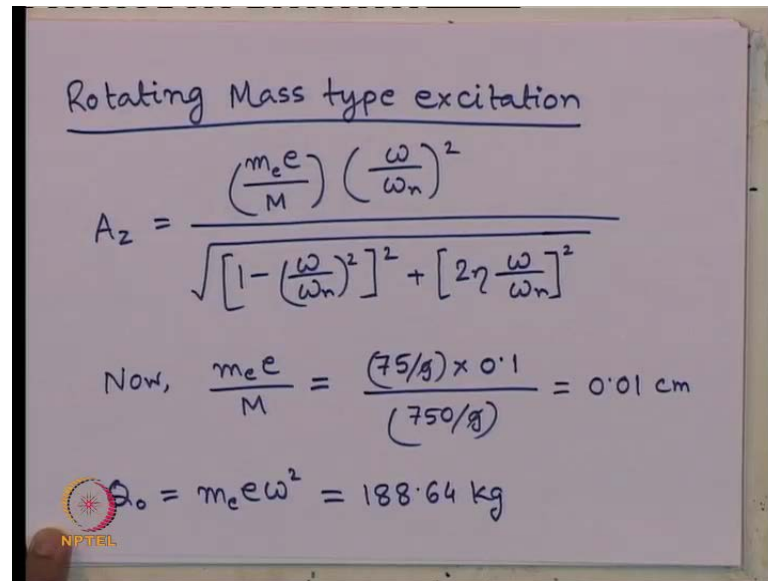 Rotating Mass type excitation
A_z = (m_e e / M) (ω/ω_n)² / √([1-(ω/ω_n)²]² + [2η ω/ω_n]²)
Now, m_e e / M = (75/g) × 0.1 / (750/g) = 0.01 cm
Q_0 = m_e e ω² = 188.64 kg
NPTEL